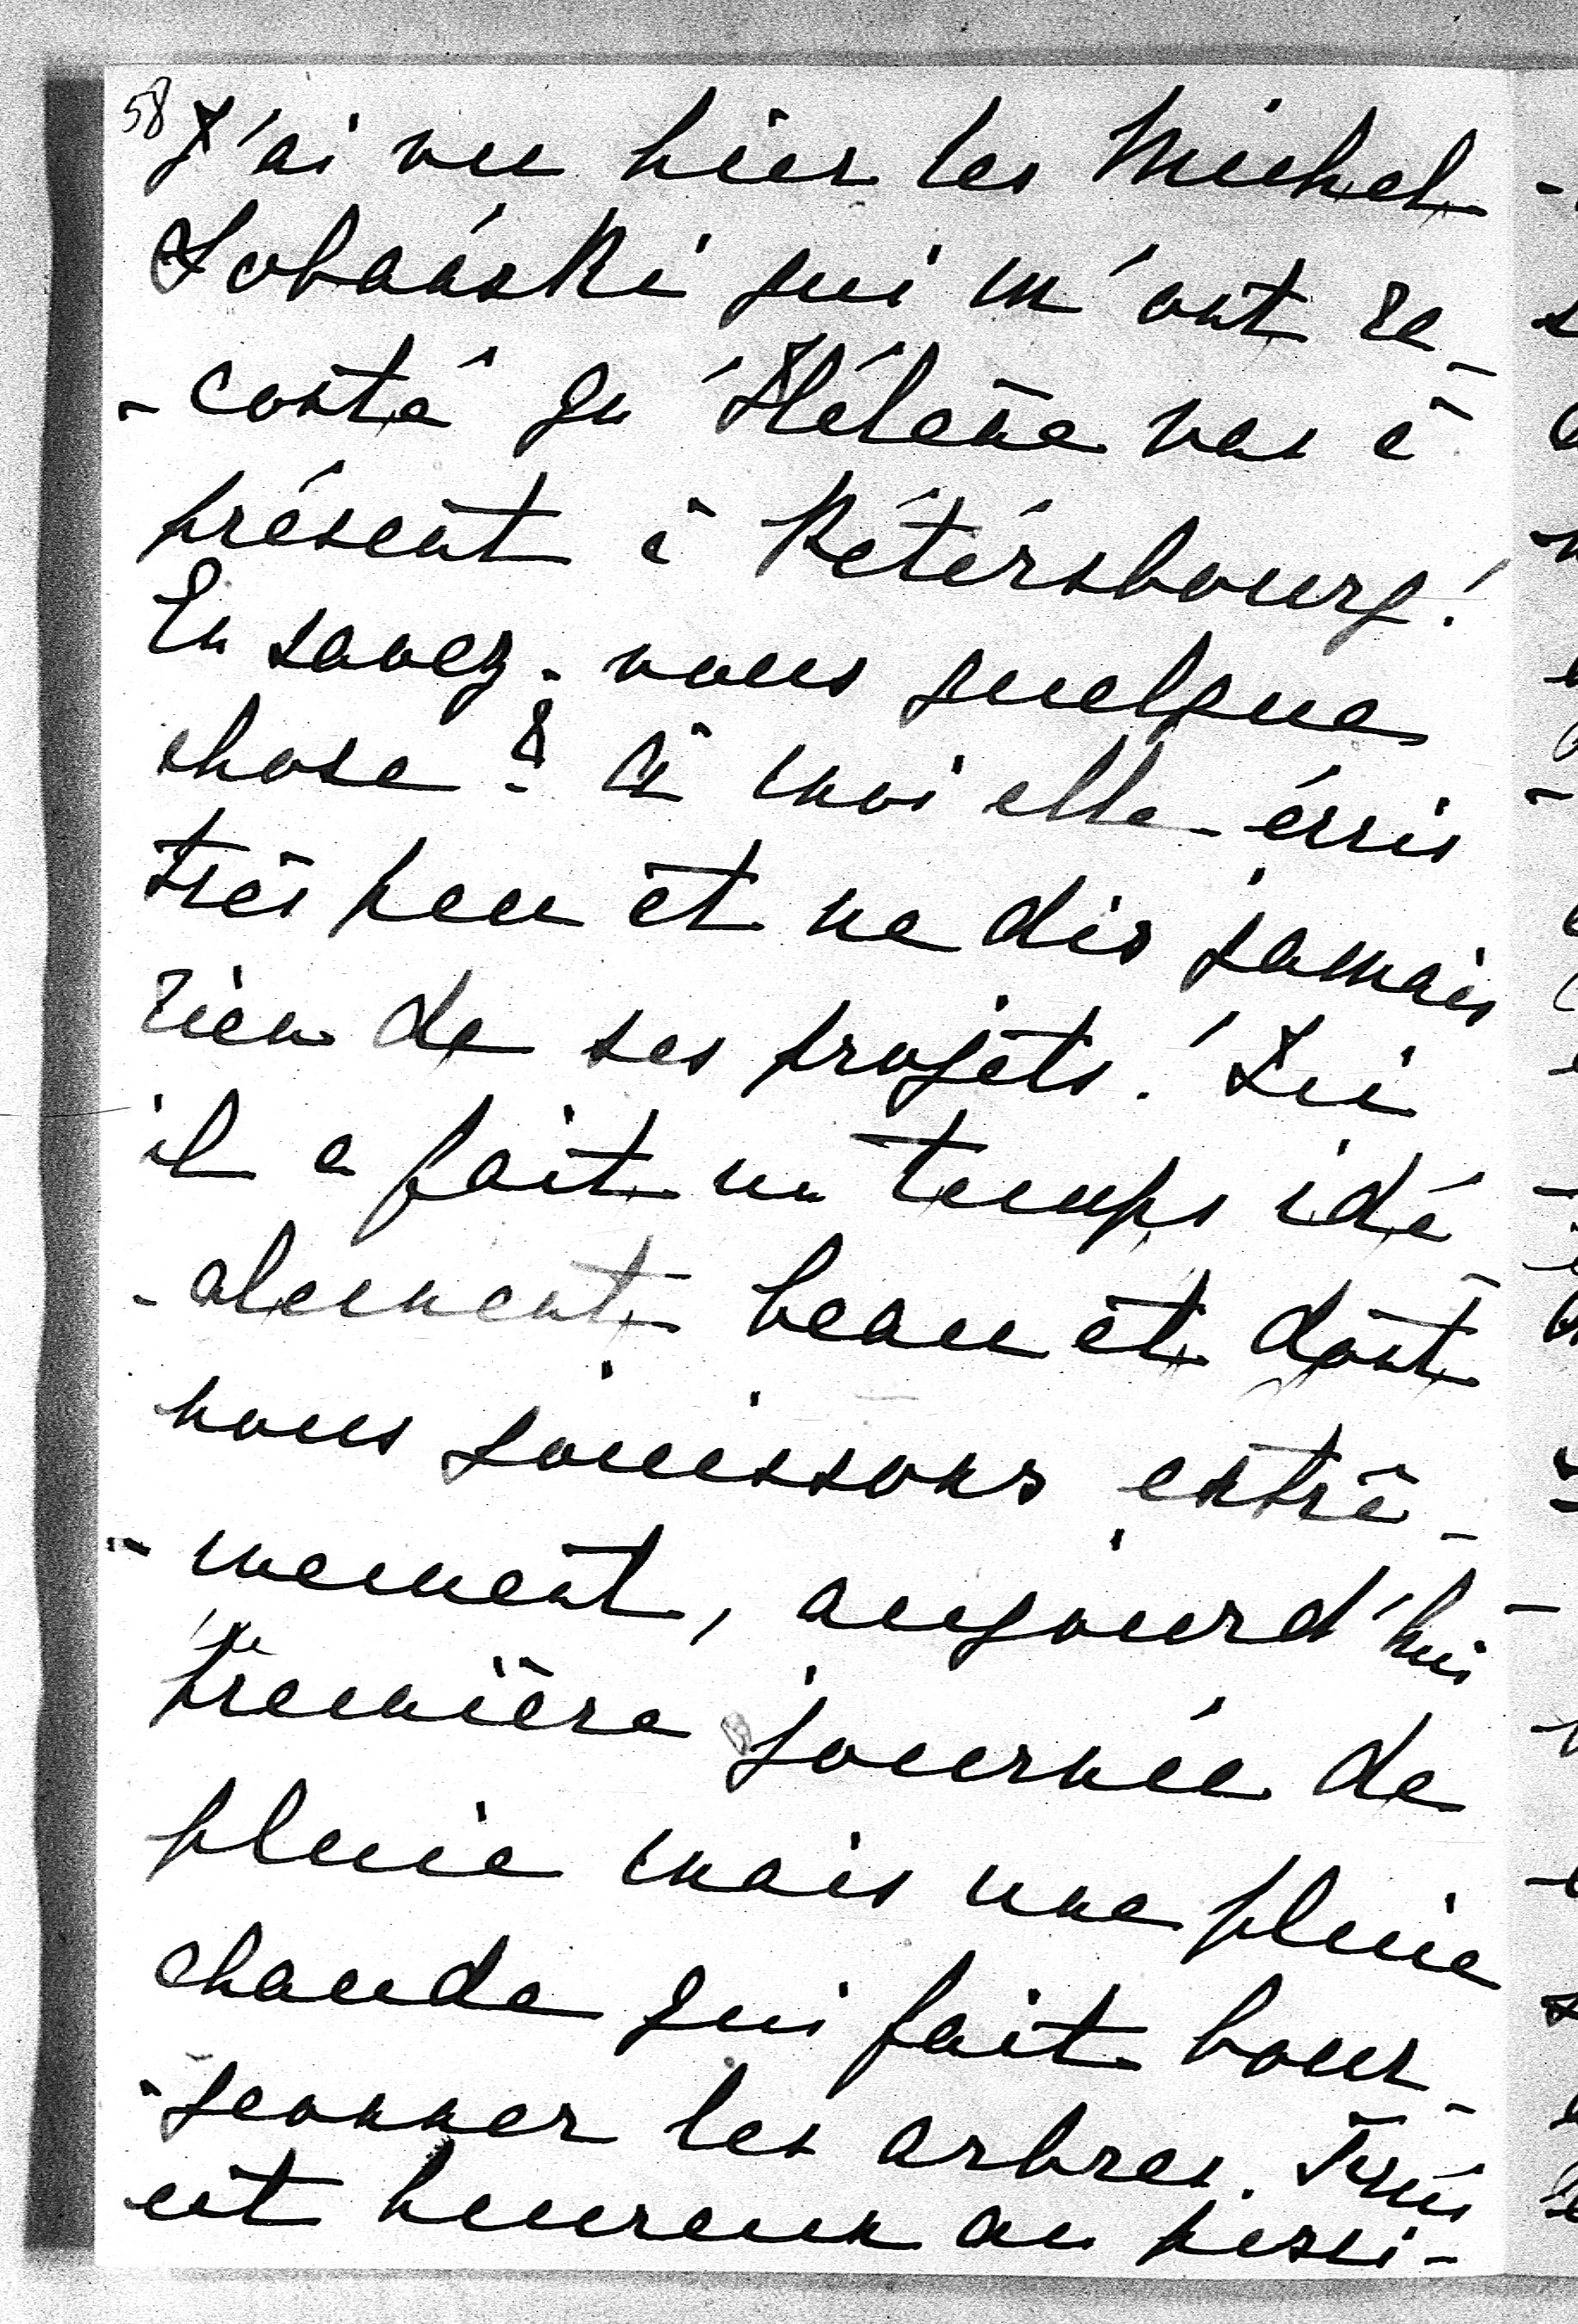 58
J'ai vu hier les Michel
Lobanski qui m'ont ra-
-conté qu'Hélène vas à
présent à Pétérsbourg!
En savez-vous quelque
chose? à moi elle écris
très peu et ne dis jamais
rien de ses projets! Ici
il a fait un temps idé
-alement beau et dont
nous jouissons extrê-
-mement, aujourd'hui
première journée de
pluie mais une pluie
chaude qui fait bour-
-geonner les arbres.
est heureux au